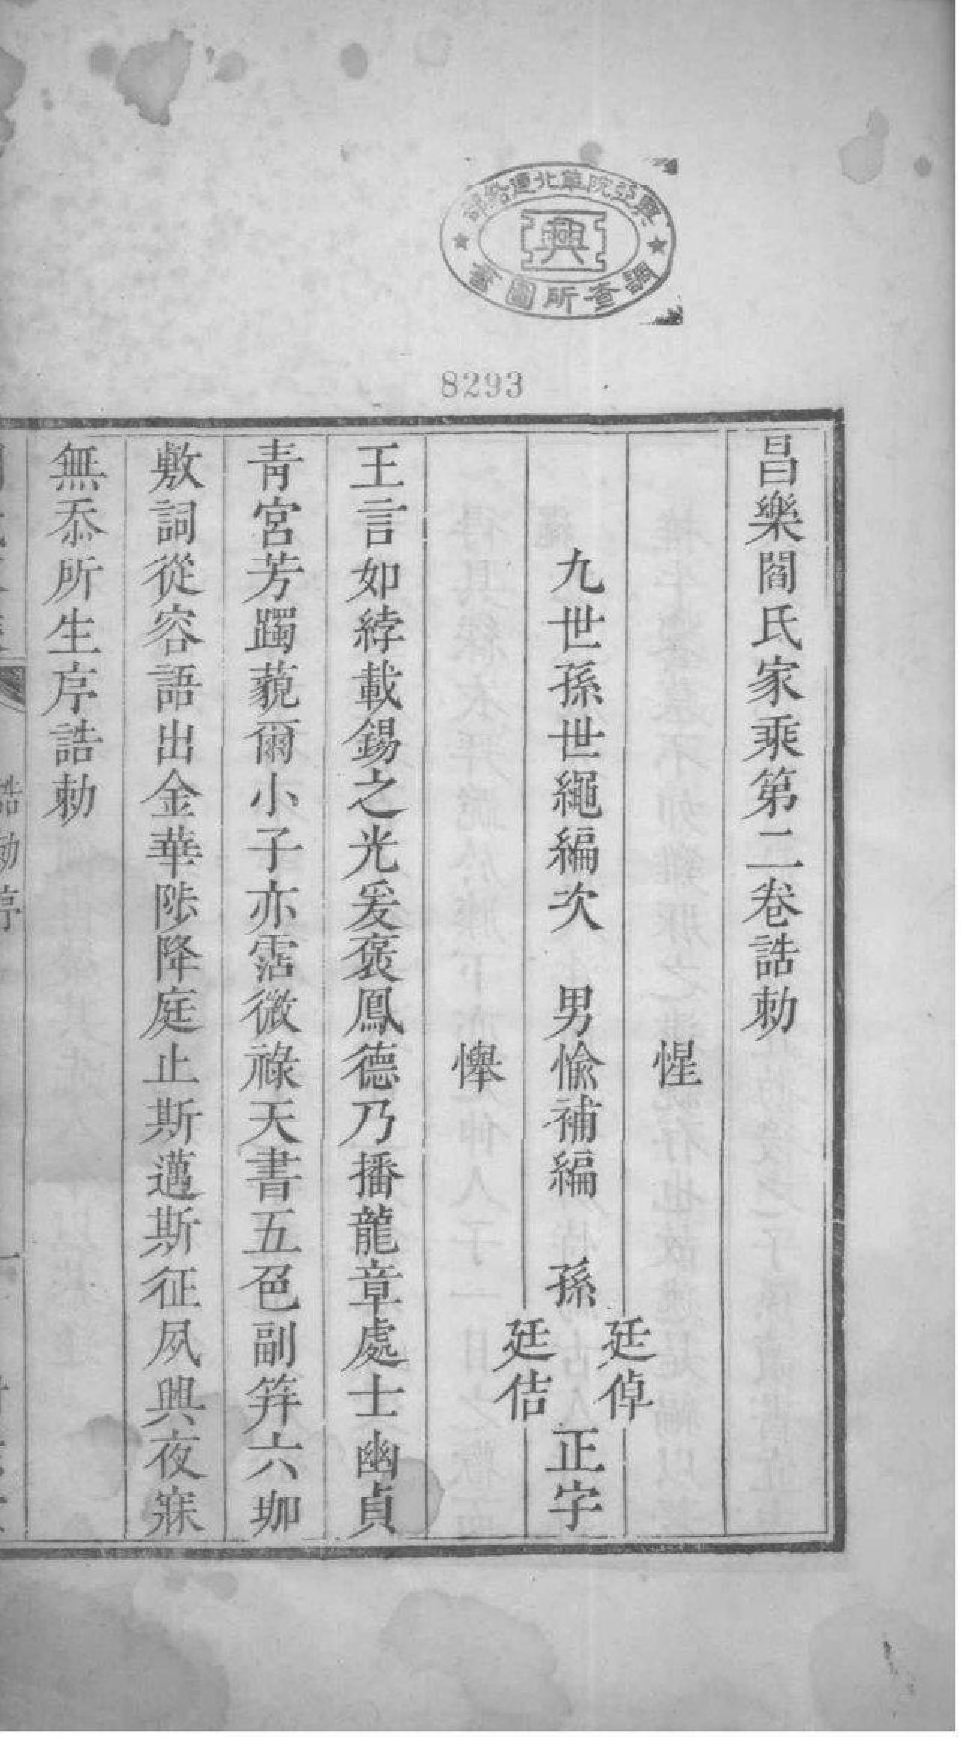 興亞院華北連絡部
興
調查所圖書
8293
昌樂閻氏家乘第二卷誥勅
惺
九世孫世繩編次 男愉補編 孫廷倬廷佶正字
㦛
王言如綍載錫之光爰褒鳳德乃播龍章處士幽貞
青宮芳躅藐爾小子亦霑微祿天書五色副笄六珈
敷詞從容語出金華陟降庭止斯邁斯征夙興夜寐
無忝所生序誥勅
誥勅序
一